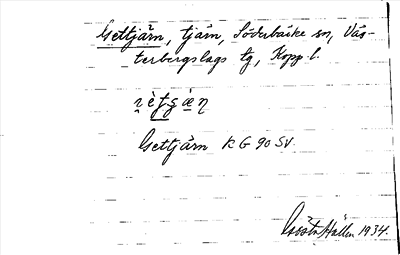 Gettjärn, tjärn, Söderbärke sn, Väs-
terbergslags tg, Kopp. l.
Gettjärn KG 90 SV.
Gösta Hallén 1934.